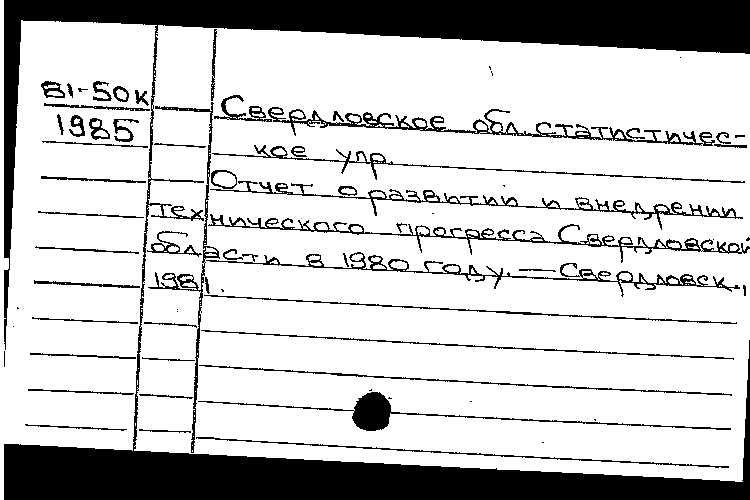 81-50к
1985
Свердловское обл. статистичес-
кое упр.
Отчет о развитии и внедрении
технического прогресса Свердловской
области в 1980 году. — Свердловск.,
1981.